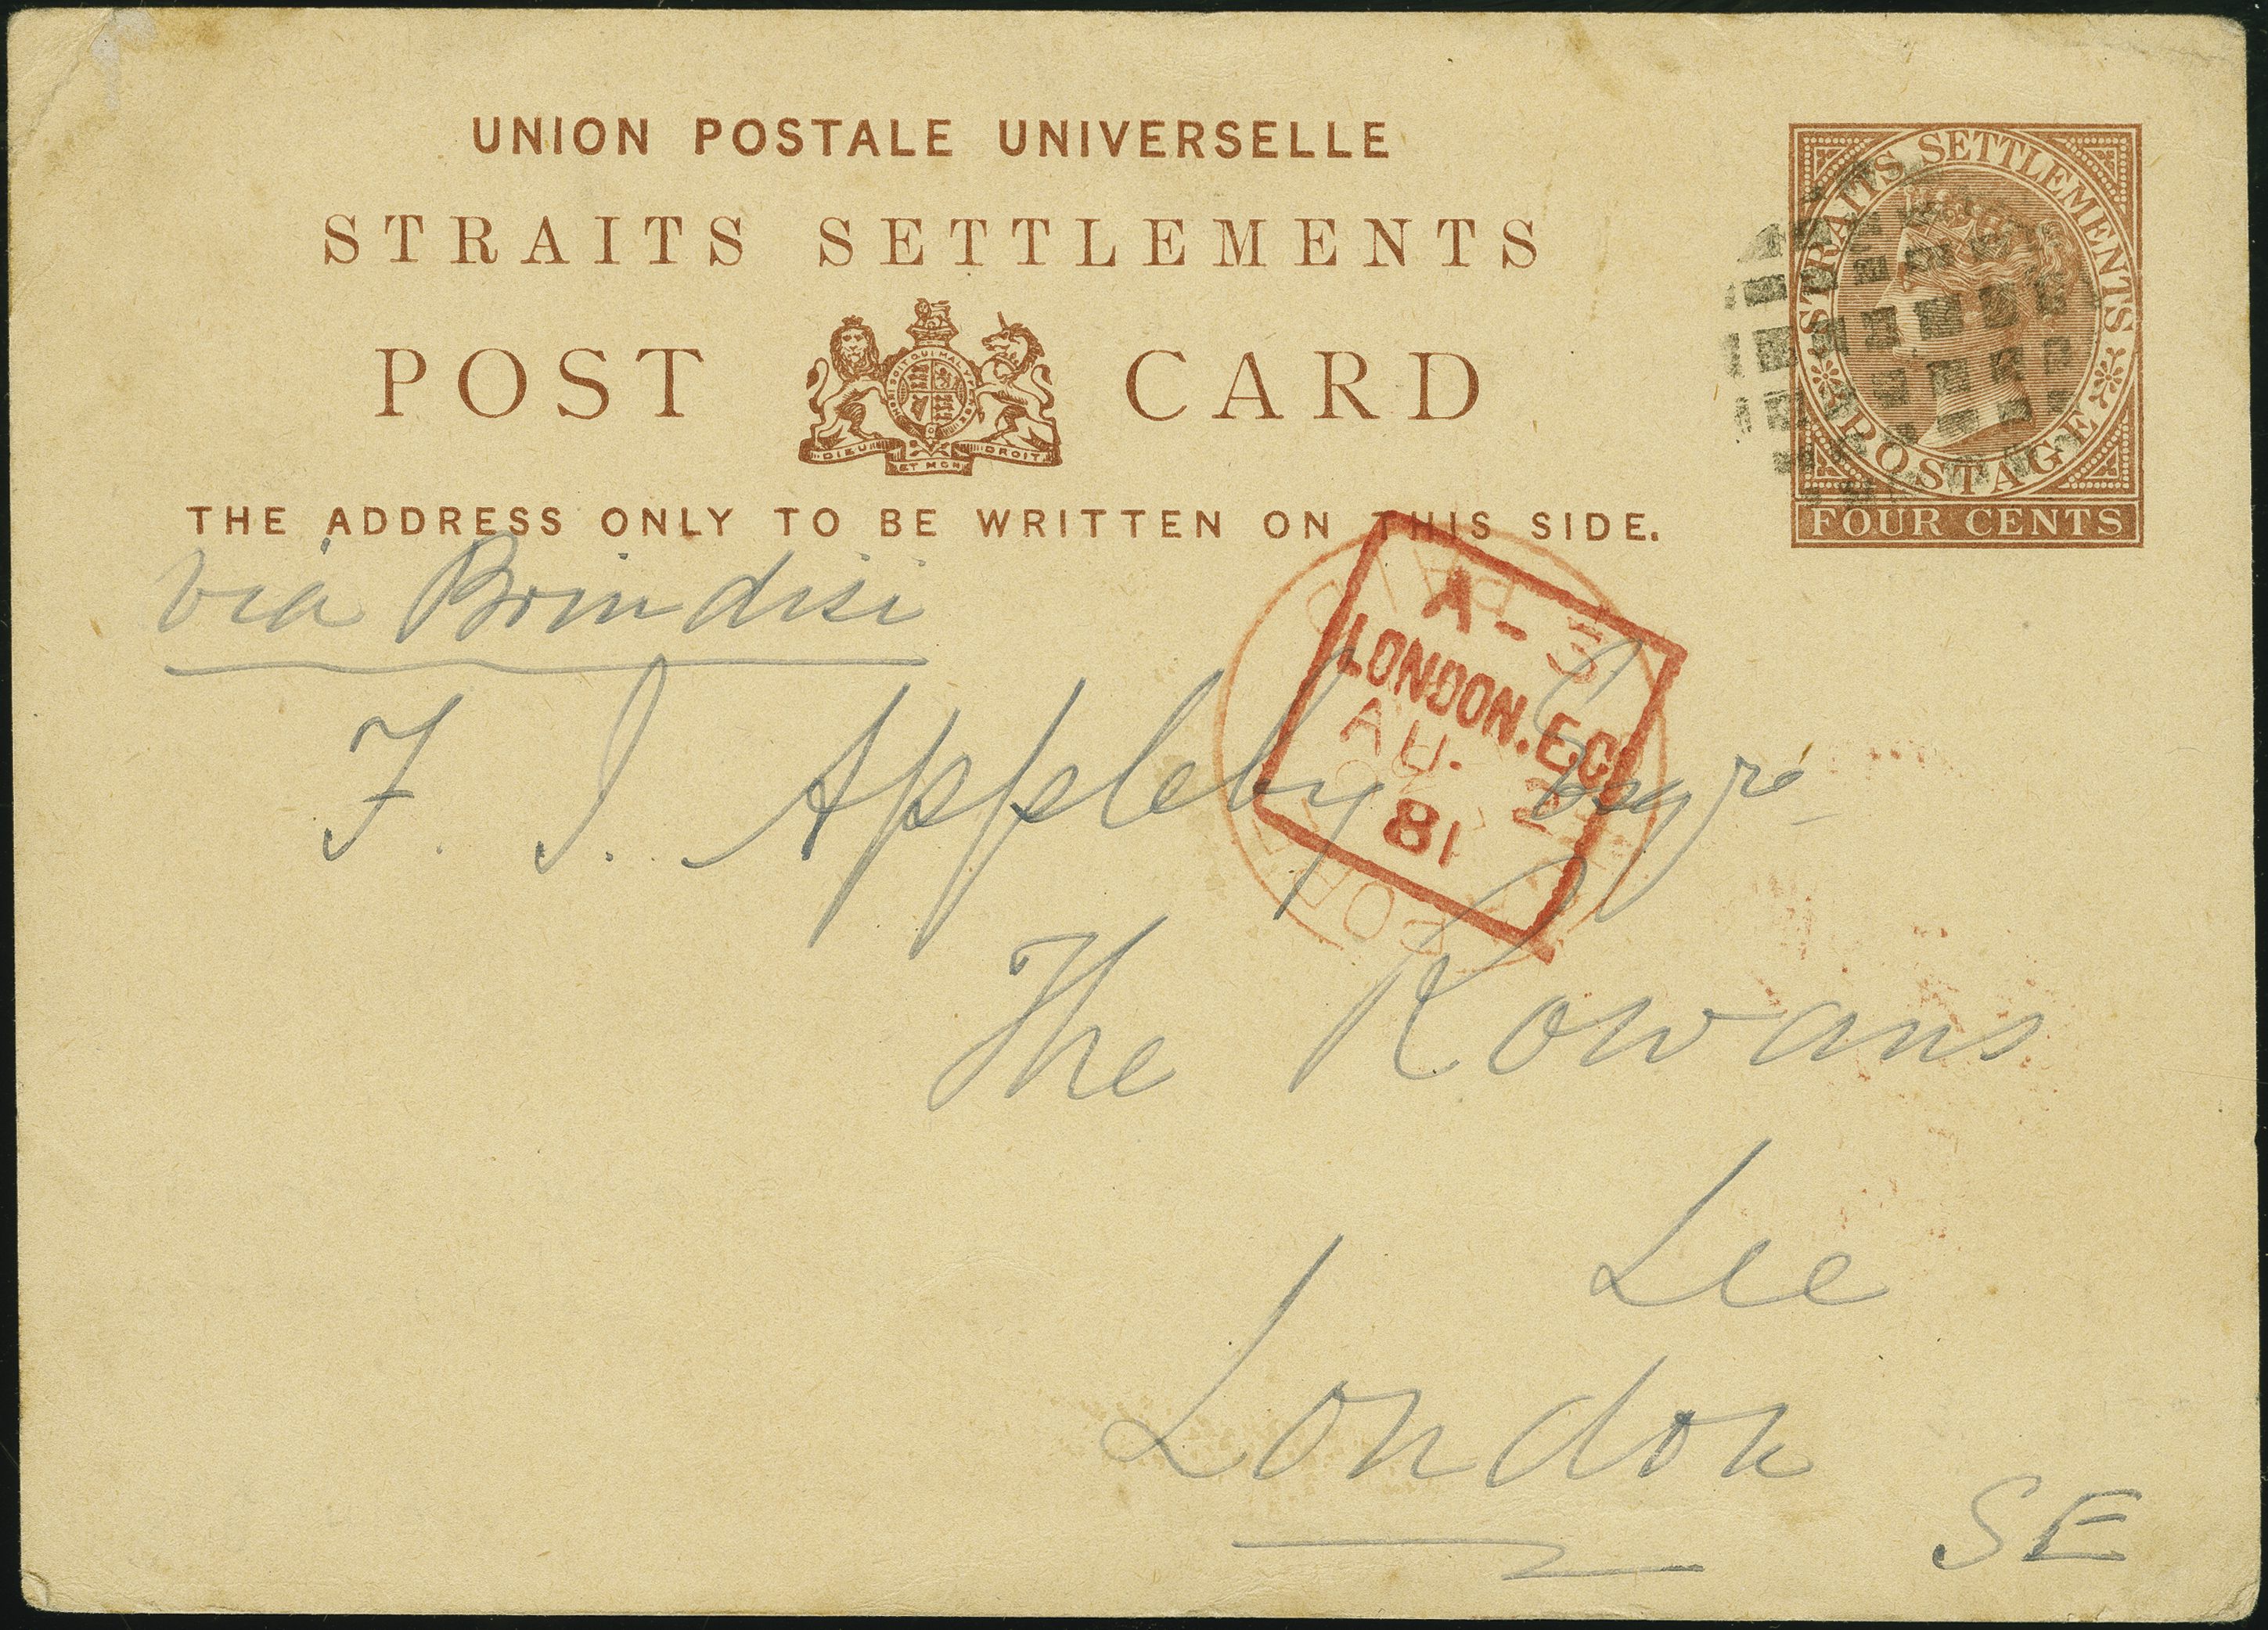 UNION POSTALE UNIVERSELLE
STRAITS SETTLEMENTS
POST CARD
HONI SOIT QUI MAL Y PENSE
DIEU ET MON DROIT
THE ADDRESS ONLY TO BE WRITTEN ON THIS SIDE.
STRAITS SETTLEMENTS
POSTAGE
FOUR CENTS
via Brindisi
A-3
LONDON.E.C
AU. 2
81
PAID
F. J. Appleby Esqre
The Rowans
Lee
London
SE